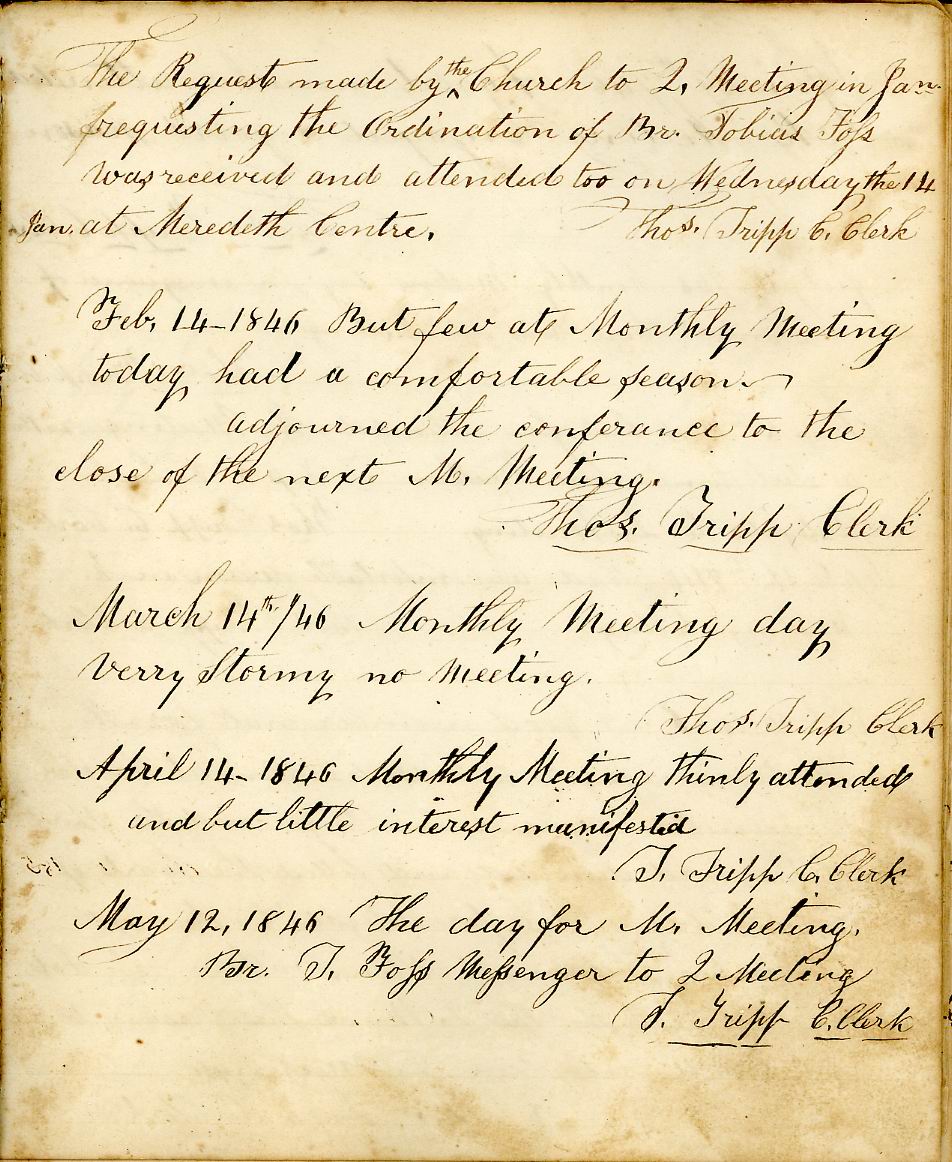 The Request made by the Church to Q. Meeting in Jan.
frequesting the Ordination of Br. Tobias Foss
was received and attended too on Wednesday the 14
Jan. at Meredeth Centre. Thos. Tripp C. Clerk
Feb. 14-1846 But few at Monthly Meeting
today had a comfortable season.
adjourned the conferance to the
close of the next M. Meeting.
Thos. Tripp Clerk
March 14th/46 Monthly Meeting day
verry Stormy no Meeting.
Thos. Tripp Clerk
April 14-1846 Monthly Meeting thinly attended
and but little interest manifested
T. Tripp C. Clerk
May 12, 1846 The day for M. Meeting.
Br. T. Foss Messenger to Q Meeting
T. Tripp C. Clerk